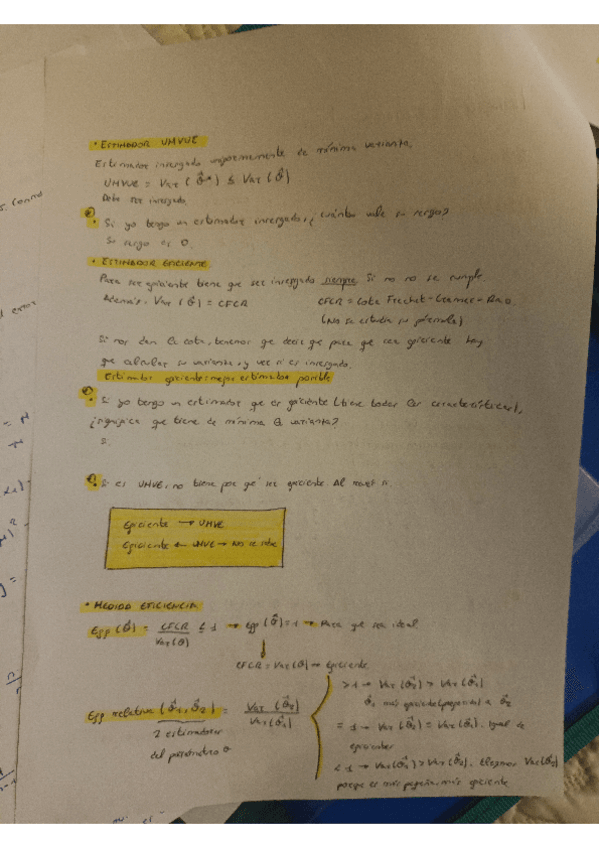 • ESTIMADOR UMVUE
Estimador insesgado uniformemente de mínima varianza.
UMVUE = Var (θ̂*) ≤ Var (θ̂)
Debe ser insesgado
• Si yo tengo un estimador insesgado, ¿cuánto vale su sesgo?
Su sesgo es 0.
• ESTIMADOR EFICIENTE
Para ser eficiente tiene que ser insesgado siempre. Si no no se cumple.
Además. Var (θ̂) = CFCR
CFCR = Cota Frechet-Cramer-Rao.
(No se estudia su fórmula)
Si nos dan la cota, tenemos que decir que para que sea eficiente hay
que calcular su varianza, y ver si es insesgado.
Estimador eficiente: mejor estimador posible
• Si yo tengo un estimador que es eficiente (tiene todas las características),
¿significa que tiene de mínima la varianza?
• Si es UMVE, no tiene por qué ser eficiente. Al revés si.
Eficiente → UMVE
Eficiente ← UMVE → No se sabe
• MEDIDA EFICIENCIA
Eff (θ̂) = CFCR / Var(θ̂) ≤ 1 → eff (θ̂) = 1 → Para que sea ideal
CFCR = Var(θ̂) → Eficiente
Eff relativa (θ̂1, θ̂2) = Var (θ̂2) / Var(θ̂1)
2 estimadores
del parámetro θ
> 1 → Var (θ̂2) > Var (θ̂1)
θ̂1 más eficiente a θ̂2
= 1 → Var (θ̂1) = Var (θ̂2). Igual de
eficientes
< 1 → Var(θ̂1) > Var(θ̂2). Elegimos Var(θ̂2)
porque es más pequeña, más eficiente